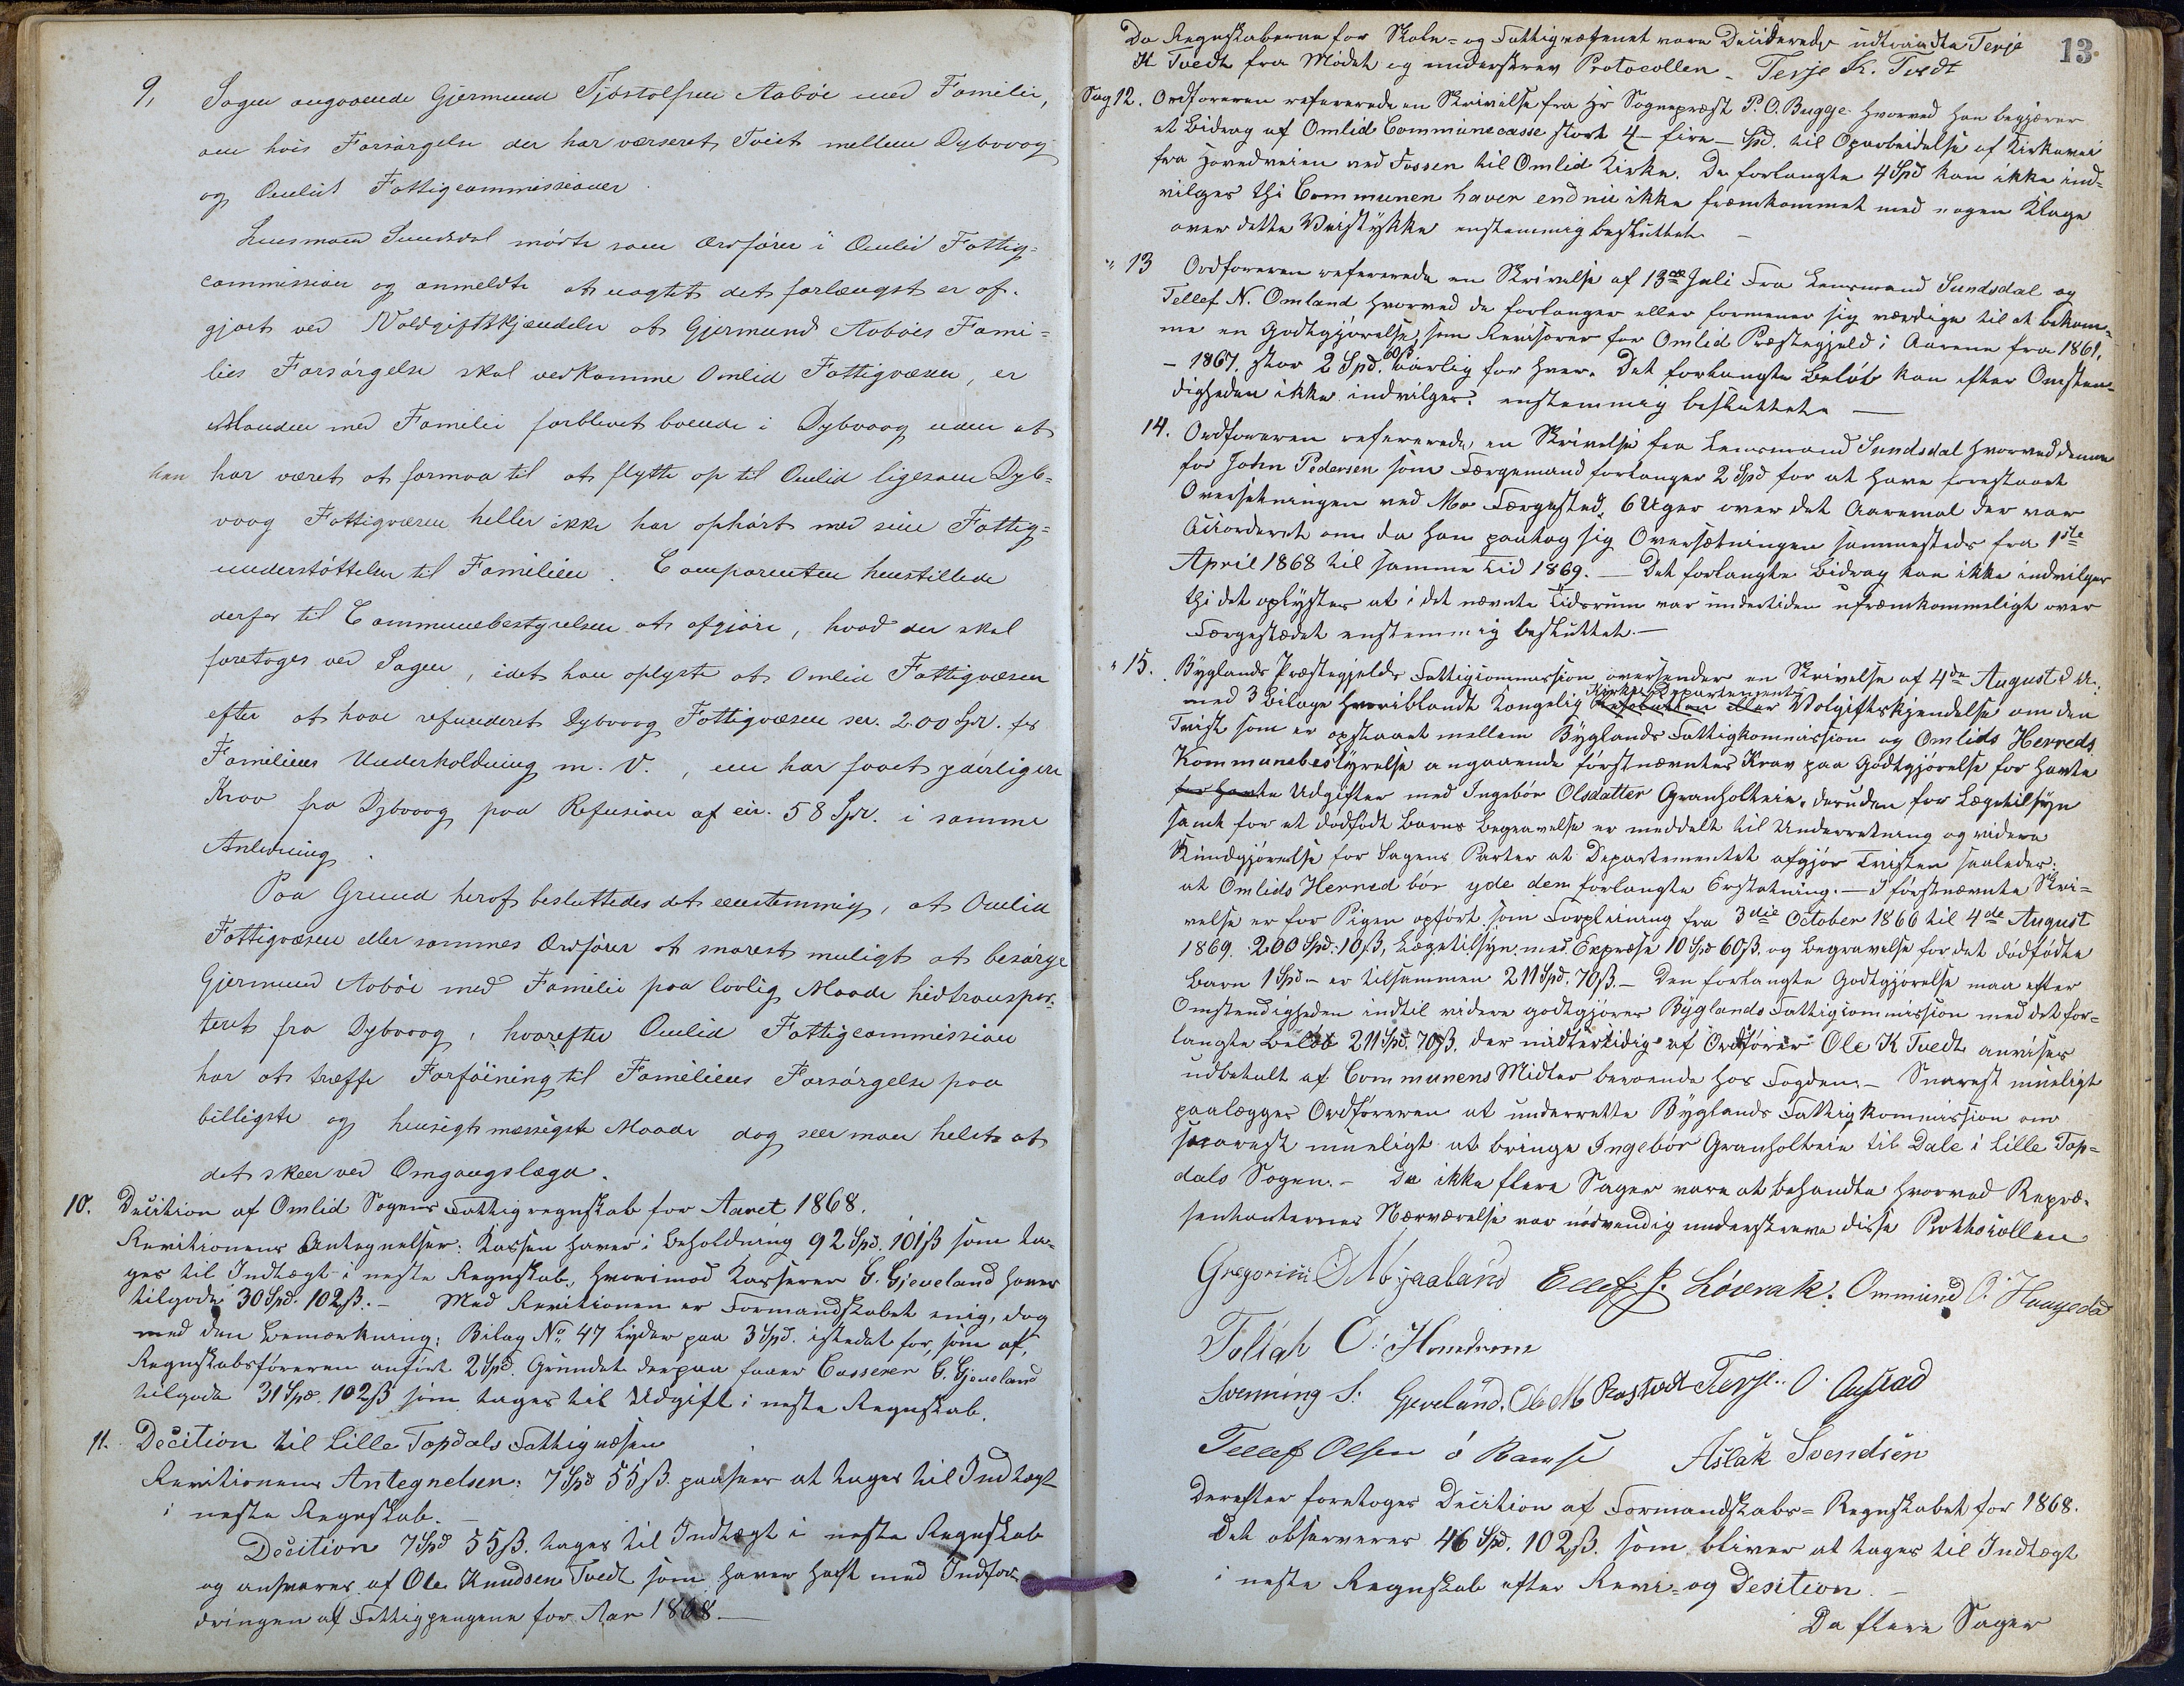 9, Sagen angaaende Gjermund Tjøstolfsen Aabøe med Familie,
om hvis Forsørgelse der har værseret Tvist mellem Dybvaag
og Omlid Fattigcommissioner.
Lensmand Sundsdal mødte som Ordfører i Omlid Fattig=
commission og anmeldte at uagtet det forlængst er af=
gjort ved Voldgiftskjendelse at Gjermund Aabøes Fami=
lies Forsørgelse skal vedkomme Omlid Fattigvæsen, er
Manden med Familie forblevet boende i Dybvaag uden at
han har været at formaa til at flytte op til Omlid ligesom Dyb=
vaag Fattigvæsen heller ikke har ophørt med sine Fattig=
understøttelser til Familien. Comparenten henstillede
derfor til Communebestyrelsen at afgjøre, hvad der skal
foretages ved Sagen, idet han oplyste at Omlid Fattigvæsen
efter at have refunderet Dybvaag Fattigvæsen ser. 200 Spd. for
Familiens Underholdning m. V., nu har faaet yderligere
Krav fra Dybvaag paa Refusion af cir. 58 Spd. i samme
Anledning.
Paa Grund heraf besluttedes det eenstemmig, at Omlid
Fattigvæsen eller sammes Ordfører at snarest muligt at besørge
Gjermund Aabøe med Familie paa lovlig Maade hidtranspor=
teret fra Dybvaag, hvorefter Omlid Fattigcommission
har at træffe Forføining til Familiens Forsørgelse paa
billigste og hensigtsmæssigste Maade dog seer man helst at
det skeer ved Omgangslægd.
10. Decition af Omlid Sogens Fattigregnskab for Aaret 1868.
Revitionens Antegnelser: Kassen haver i Beholdning 92 Spd. 101 ß som ta=
ges til Indtægt i neste Regnskab, hvorimod Kasserer G. Gjeveland haver
tilgode 30 Spd. 102 ß. - Med Revitionen er Formandskabet enig, dog
med den Bemærkning: Bilag No 47 lyder paa 3 Spd. istedet for, som af
Regnskabsføreren anført 2 Spd. Grundet derpaa faaer Casserer G. Gjeveland
tilgode 31 Spd. 102 ß som tages til Udgift i neste Regnskab.
11. Decition til Lille Topdals Fattigvæsen
Revitionens Antegnelsen: 7 Spd 55 ß. paasees at tages til Indtægt
i neste Regnskab. -
Decition 7 Spd 55 ß. tages til Indtægt i neste Regnskab
og ansvares af Ole Knudsen Tvedt som haver havt med Indfor=
dringen af Fattigpengene for Aar 1868. -
13.
Da Regnskaberne for Skole- og Fattigvæsenet vare Deciderede udtraadte Terje
K Tvedt fra Mødet og underskrev Protocollen - Terje K. Tvedt
Sag 12. Ordføreren refererede en Skrivelse fra Hr Sognepræst P. O. Bugge hvorved han begjærer
et Bidrag af Omlid Communecasse stort 4 - fire - Spd. til Oparbeidelse af Kirkevei
fra Hovedveien ved Fossen til Omlid Kirke. De forlangte 4 Spd kan ikke ind=
vilges thi Communen haver endnu ikke fremkommet med nogen Klage
over dette Veistykke enstemmig besluttet. -
" 13 Ordføreren refererede en Skrivelse af 13de Juli fra Lensmand Sundsdal og
Tellef N. Omland hvorved de forlanger eller formener sig værdige til at bekom=
me en Godtgjørelse, som Revisorer for Omlid Præstegjeld i Aarene fra 1861.
- 1867. stor 2 Spd. 60 ß aarlig for hver. Det forlangte Beløb kan efter Omsten=
digheden ikke indvilges. enstemmig besluttet. -
14. Ordføreren refererede en Skrivelse fra Lensmand Sundsdal hvorved denne
for John Pedersen som Færgemand forlanger 2 Spd for at have forestaaet
Oversetningen ved Mo Færgested, 6 Uger over det Aaremal der var
Accorderet om da han paatog sig Oversætningen sammesteds fra 1ste
April 1868 til samme Tid 1869. - Det forlangte Bidrag kan ikke indvilges
thi det oplystes at i det nævnte Tidsrum var undertiden ufremkommeligt over
Færgestædet enstemmig besluttet. -
" 15. Byglands Præstegjelds Fattigcommission oversender en Skrivelse af 4de August d. A.:
med 3 Bilage hvoriblandt Kongelig Kirke Departements Resolution eller Volgiftskjendelse om den
Tvist som er opstaaet mellem Byglands Fattigkommission og Omlids Herreds
Kommunebestyrelse angaaende førstnævntes Krav paa Godtgjørelse for havte
for havte Udgifter med Ingebør Olsdatter Granholtein, desuden for Lægetilsyn
samt for et dødfødt Barns Begravelse er meddelt til Underretning og videre
Kundgjørelse for Sagens Parter at Departementet afgjør Tvisten saaledes:
at Omlids Herred bør yde den forlangte Erstatning. - I førstnævnte Skri=
velse er for Pigen opført som Forpleining fra 3die October 1866 til 4de August
1869. 200 Spd. 10 ß, Lægetilsyn med Expræse 10 Spd 60 ß. og Begravelse for det dødfødte
Barn 1 Spd - er tilsammen 211 Spd. 70 ß. - Den forlangte Godtgjørelse maa efter
Omstendigheden indtil videre godtgjøres Byglands Fattigcommission med det for=
langte Beløb 211 Spd. 70 ß. der midlertidig af Ordfører Ole K Tvedt anvises
udbetalt af Communens Midler beroende hos Fogden. - Snarest mueligt
paalægges Ordføreren at underrette Byglands Fattigkommission om
snarest mueligt at bringe Ingebør Granholtein til Dale i Lille Top=
dals Sogen. - Da ikke flere Sager vare at behandle hvorved Repræ=
sentanternes Nærværelse var nødvendig underskreve disse Prothocollen
Gregorius O Mjaaland Ellef J. Løvrak. Ommund O. Haugedal
Toliah O.
Svenning S. Gjeveland. Ole M Terje O.
Tellef Olsen Ramse Aslak Svendsen
Derefter foretoges Decition af Formandskabs-Regnskabet for 1868.
Det observeres 46 Spd. 102 ß. som bliver at tages til Indtægt
i neste Regnskab efter Revi- og Desition. -
Da flere Sager